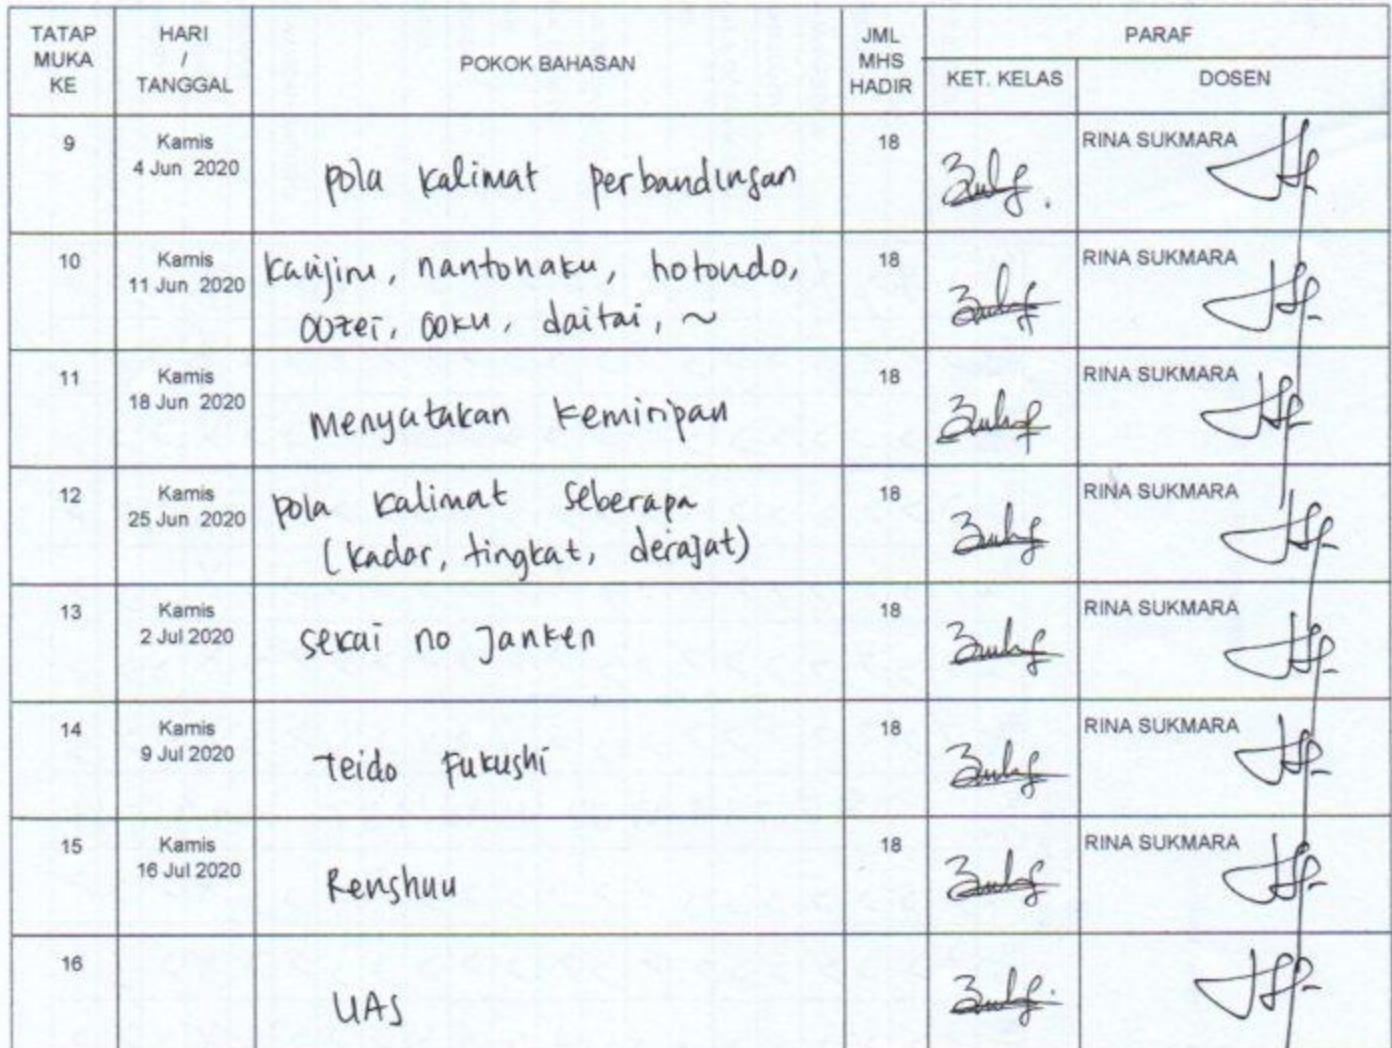 TATAP MUKA KE
HARI / TANGGAL
POKOK BAHASAN
JML MHS HADIR
PARAF
KET. KELAS
DOSEN
9
Kamis
4 Jun 2020
pola kalimat perbandingan
18
RINA SUKMARA
10
Kamis
11 Jun 2020
Kanjiru, nantonaku, hotondo,
oozei, ooku, daitai, ~
18
RINA SUKMARA
11
Kamis
18 Jun 2020
menyatakan kemiripan
18
RINA SUKMARA
12
Kamis
25 Jun 2020
pola kalimat seberapa
(kadar, tingkat, derajat)
18
RINA SUKMARA
13
Kamis
2 Jul 2020
sekai no Janken
18
RINA SUKMARA
14
Kamis
9 Jul 2020
Teido Fukushi
18
RINA SUKMARA
15
Kamis
16 Jul 2020
Renshuu
18
RINA SUKMARA
16
UAS